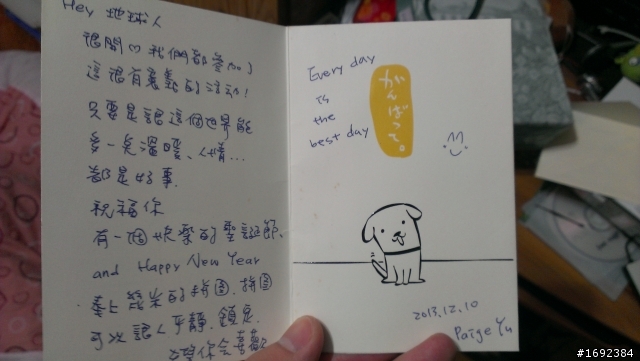 Hey 地球人
很開心我們都參加了
這很有意義的活動!
只要是讓這個世界能
多一點溫暖、人情...
都是好事.
祝福你
有一個快樂的聖誕節.
and Happy New Year
奉上盛業的拼圖.拼圖
可以讓人平靜.
希你會喜歡
Every day
is
the
best day
がんばって。
2013.12.10
Paige Yu
#1692384